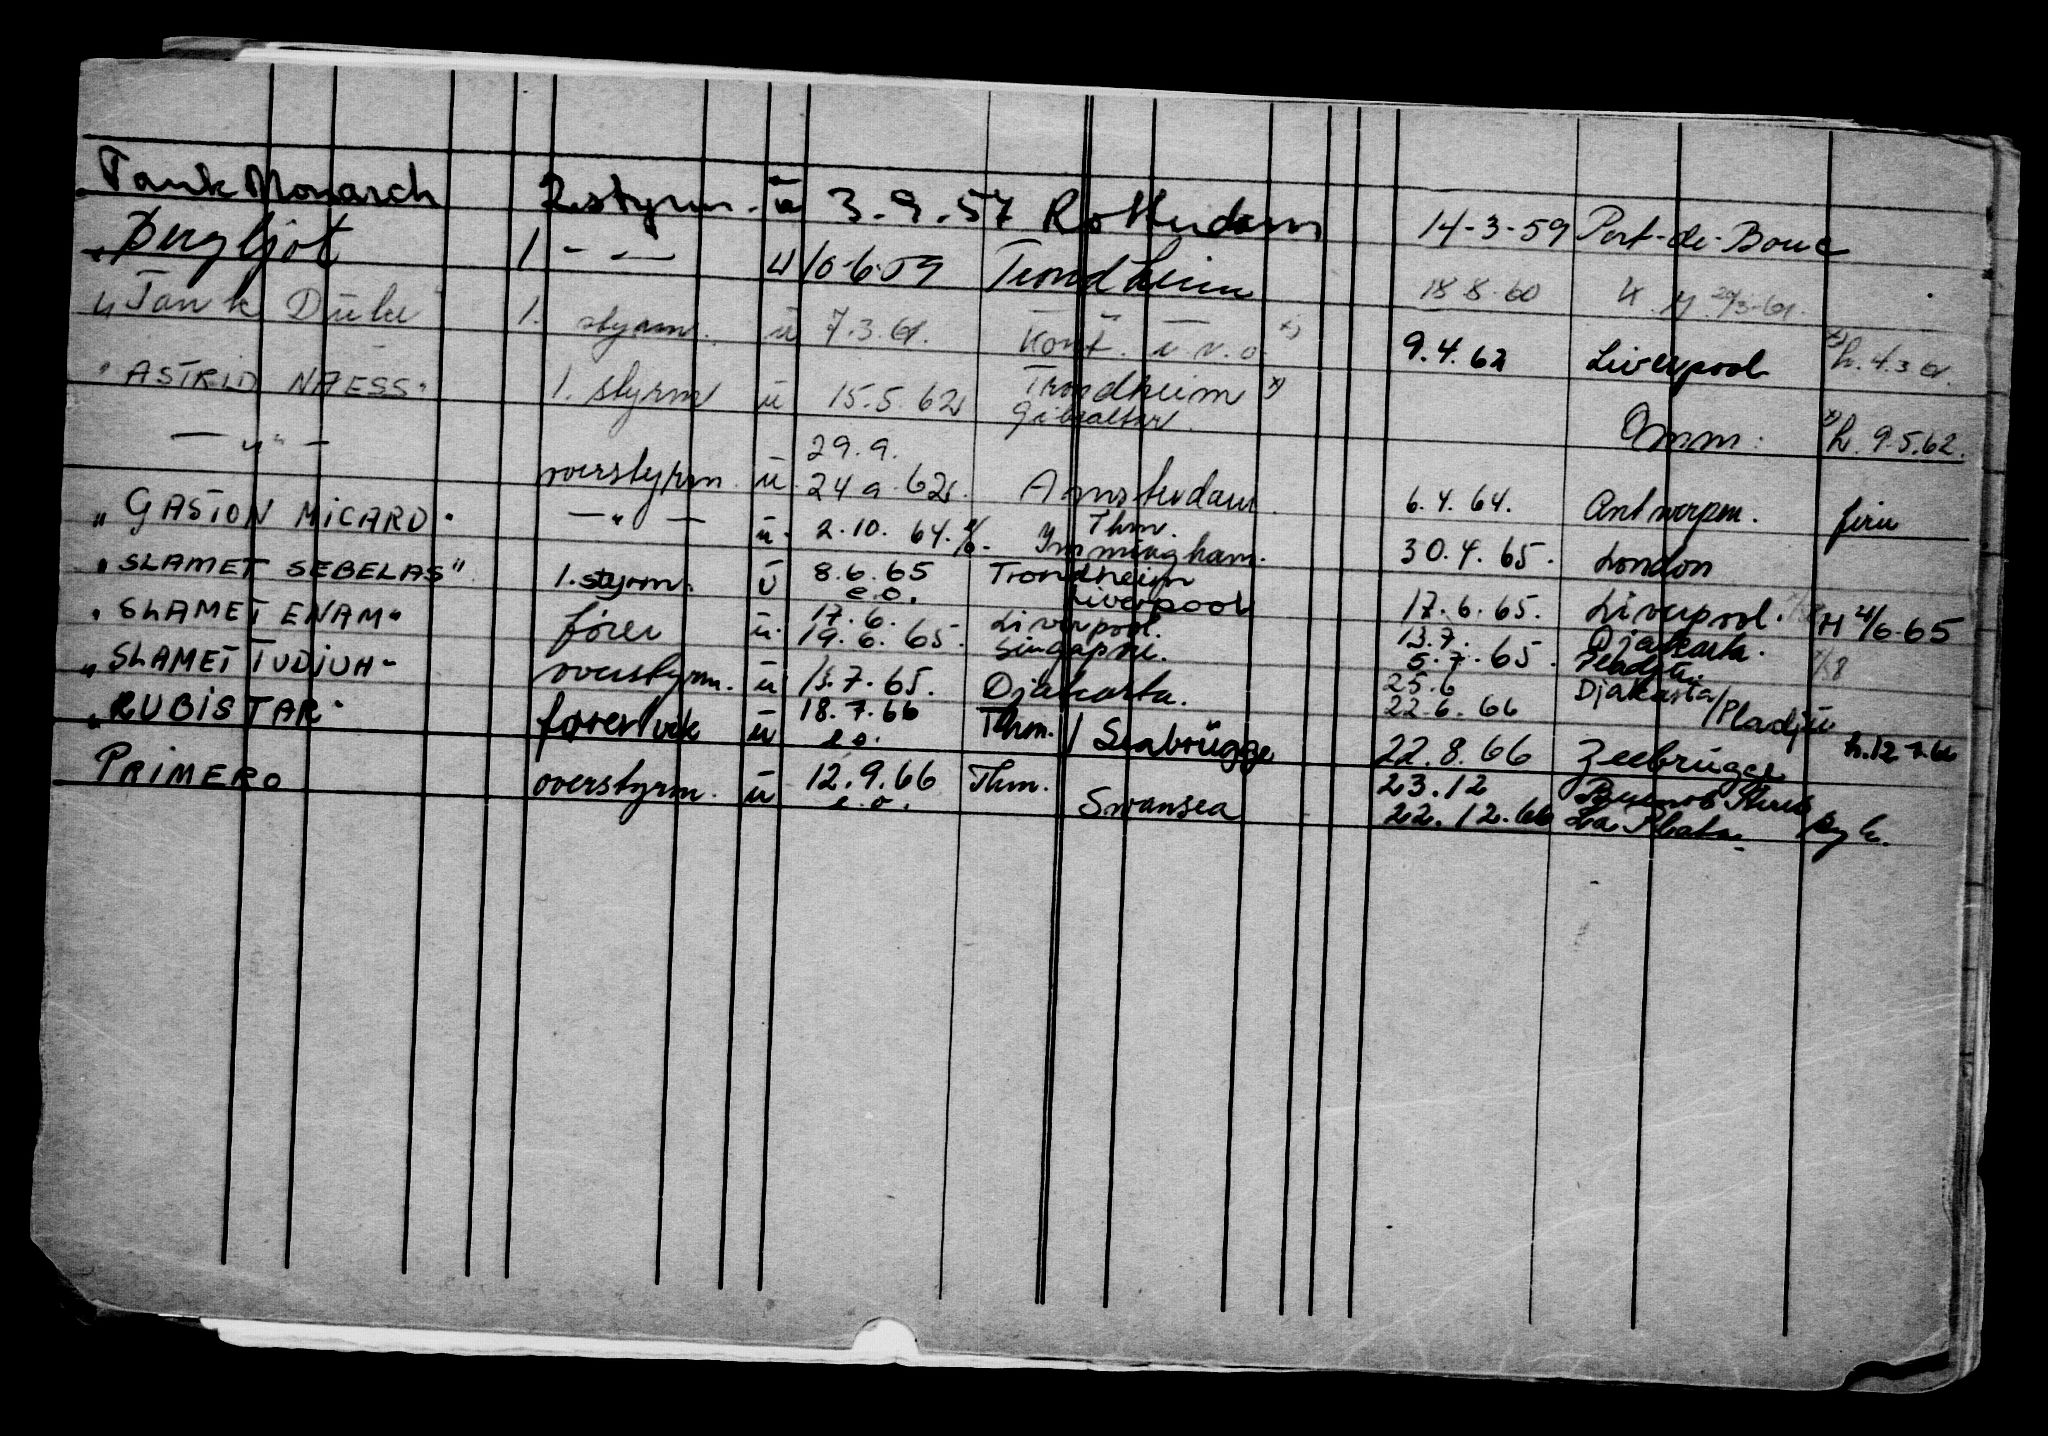 Tank Monarch 2. styrm. ü 3.9.57 Rotterdam 14-3-59 Port-de-Bouc
" Bergljot 1. - — 10-6-59 Trondheim 18.8.60
" Tank Duke 1. styrm. ü 7.3.61. Kont. ü.v.o. x) 9.4.62 Liverpool x) h. 4.3.61.
" ASTRID NÆESS" 1. styrm ü 15.5.62 Trondheim x) Omm: x) h. 9.5.62.
Gibraltar.
— " — overstyrm. ü. 29.9.
24.9.62. Amsterdam. 6.4.64. Antwerpen. ferie
" GASTON MICARD" — " — ü. 2.10.64. Thm.
Immingham. 30.4.65. London
" SLAMET SEBELAS" 1. styrm. ü 8.6.65 Trondheim
e.o. Liverpool 17.6.65. Liverpool. H 4/6.65
" SLAMET ENAM" fører ü. 17.6. Liverpool. 13.7. Djakarta.
19.6.65. Singapore. 5.7.65. Pladju.
" SLAMET TUDJUH" overstyrm. ü 13.7.65. Djakarta. 25.6 Djakarta/Pladju
22.6.66
" RUBISTAR" ü 18.7.66 Thm. / Seabrügge 22.8.66 Zeebrugge h. 12.7.66
e.o.
PRIMERO overstyrm. ü 12.9.66 Thm. 23.12 Buenos Aires
e.o. Swansea 22.12.66 La Plata syk.